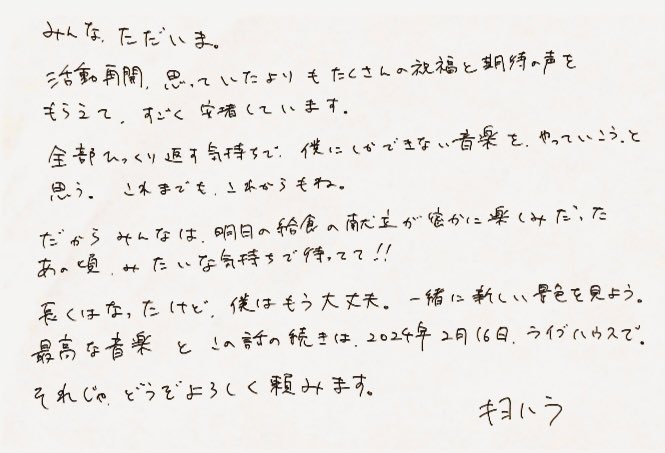 みんな、ただいま。
活動再開、思っていたよりもたくさんの祝福と期待の声を
もらえて、すごく安堵しています。
全部ひっくり返す気持ちで、僕にしかできない音楽を、やっていこう、と
思う。これまでも、これからもね。
だからみんなは、明日の給食の献立が密かに楽しみだった
あの頃、みたいな気持ちで待ってて!!
長くはなったけど、僕はもう大丈夫。一緒に新しい景色を見よう。
最高な音楽とこの話の続きは、2024年2月16日、ライブハウスで。
それじゃ、どうぞよろしく頼みます。
キヨハラ